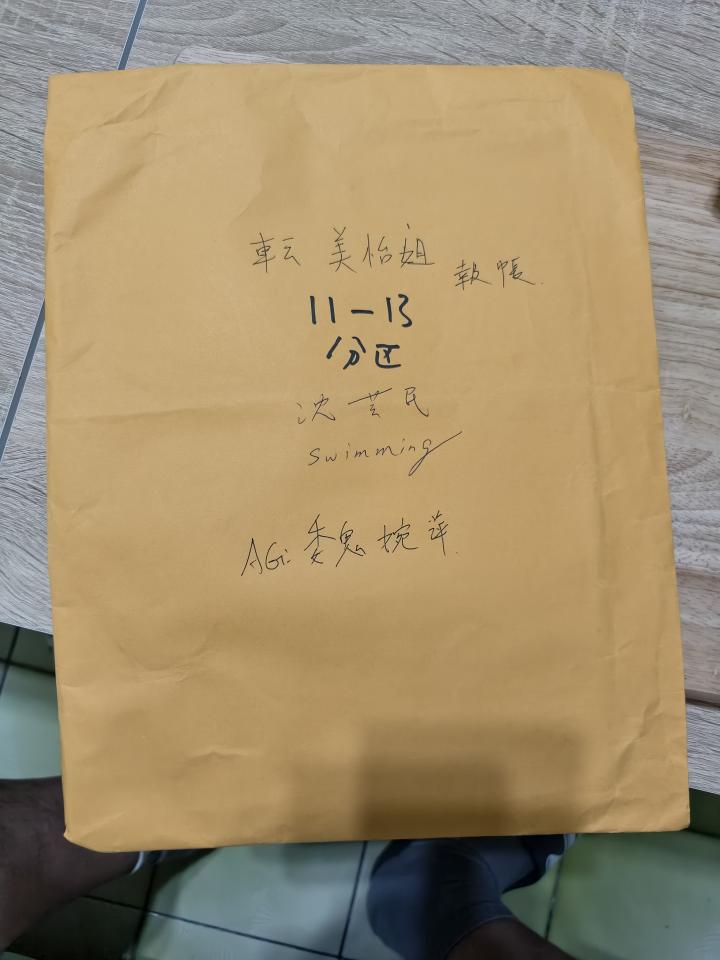 転 美怡姐 報帳.
11-13
分区
沈芸民
swimming
AG: 魏婉萍